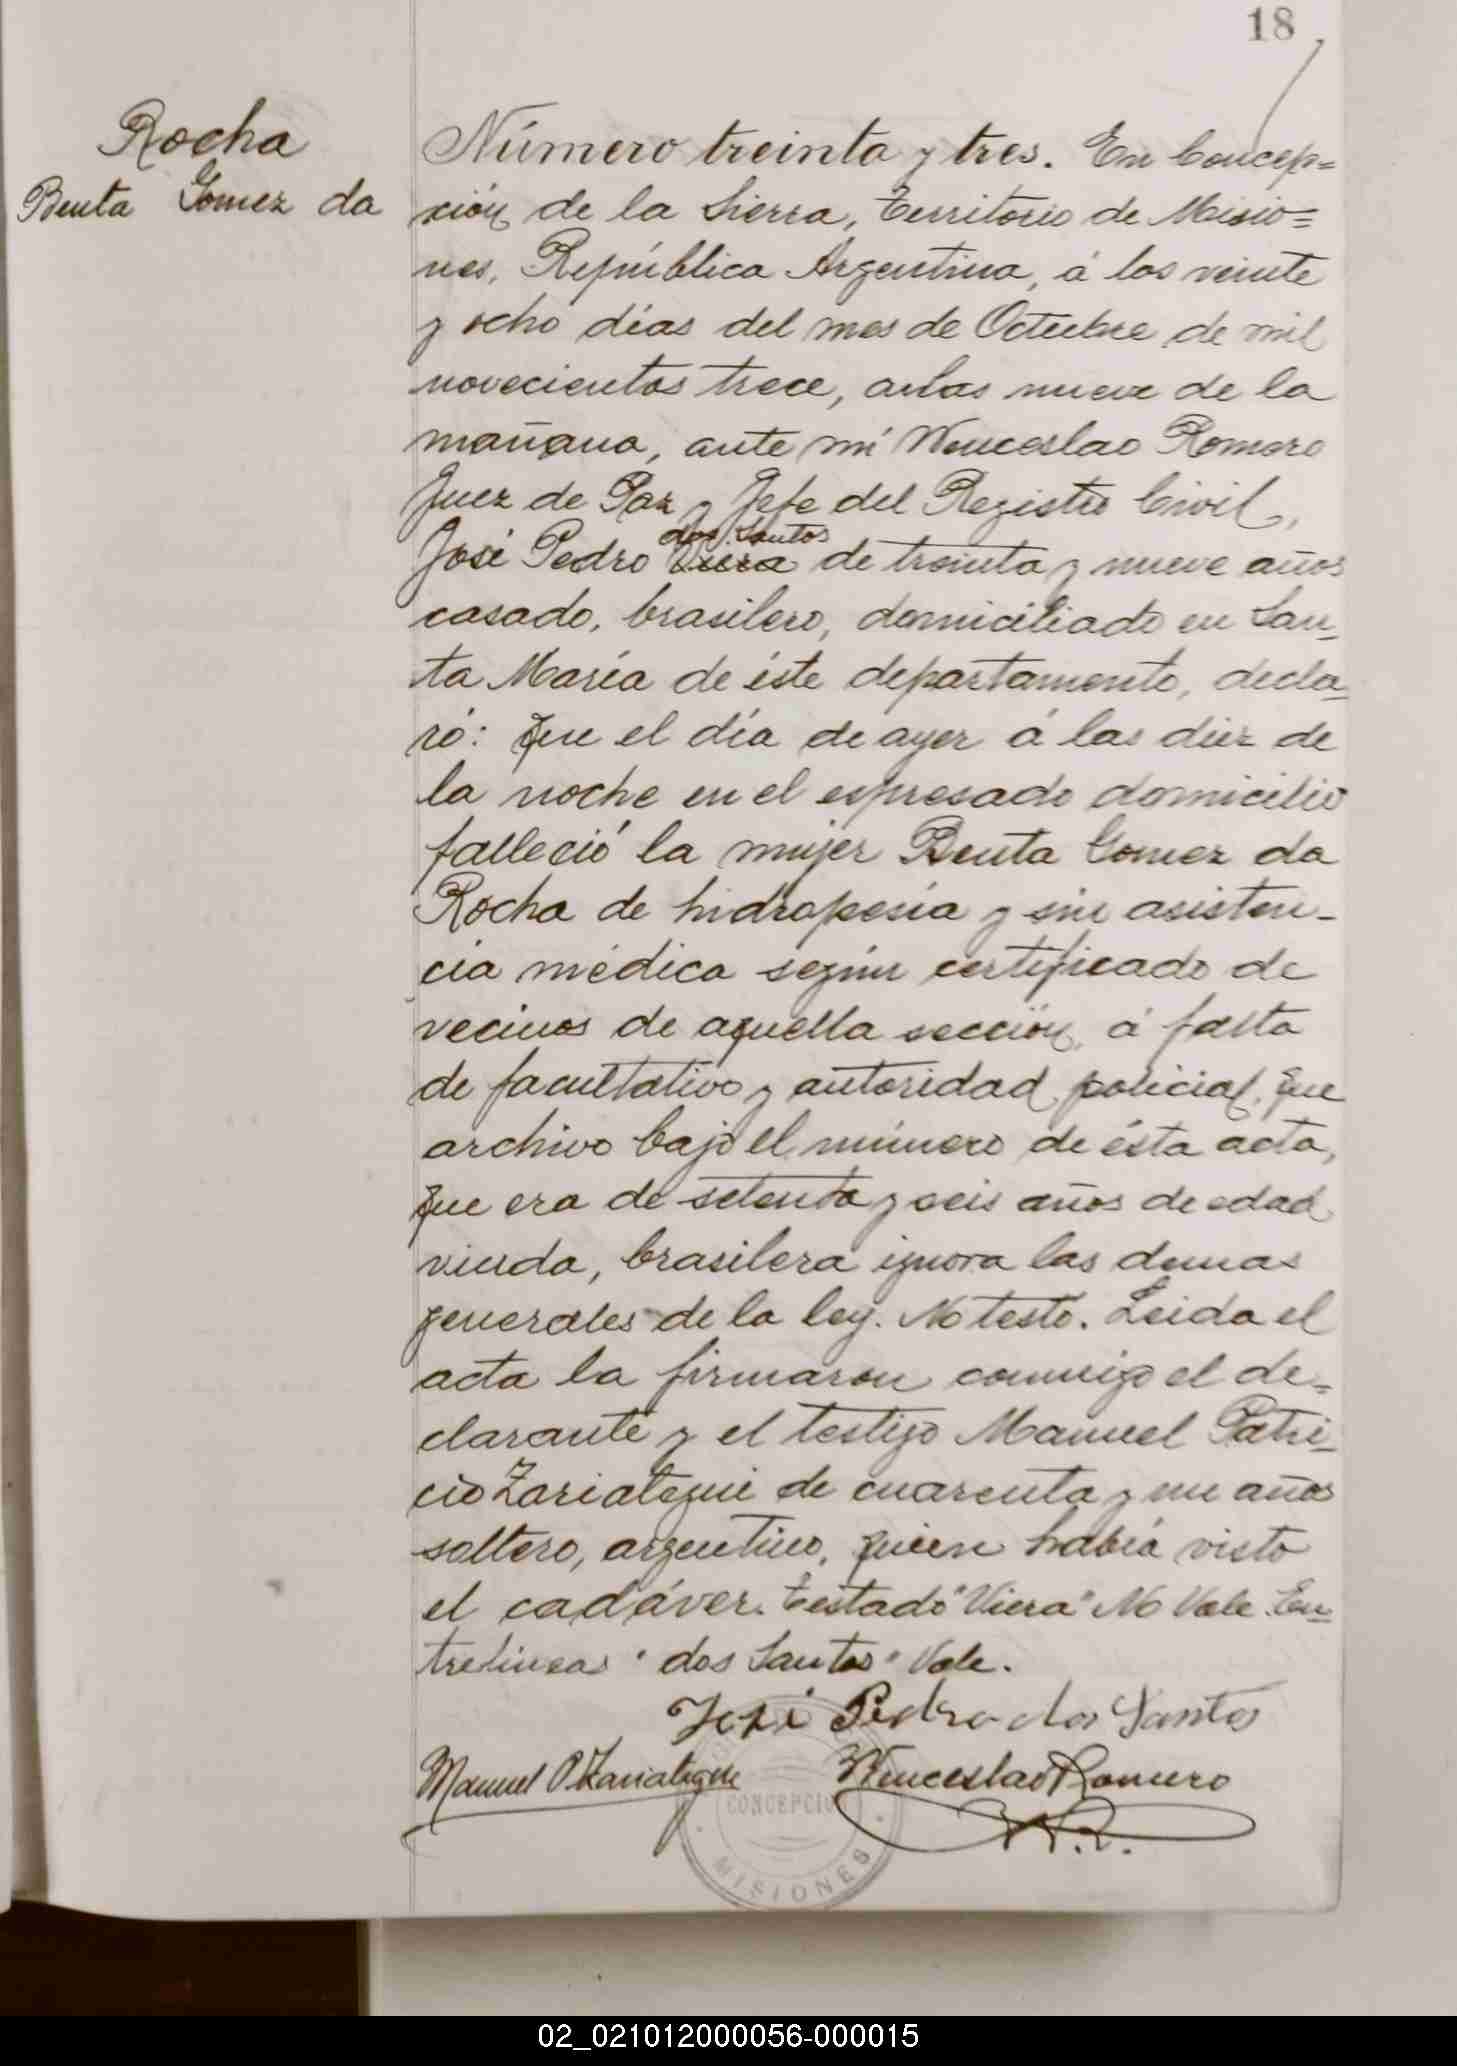 18
Rocha
Benta Gomez da
Número treinta y tres. En Concep=
ción de la Sierra, Territorio de Misio=
nes, República Argentina, á los veinte
y ocho días del mes de Octubre de mil
novecientos trece, a las nueve de la
mañana, ante mí Wenceslao Romero
Juez de Paz y Jefe del Registro Civil,
dos Santos
José Pedro Viera de treinta y nueve años
casado, brasilero, domiciliado en San-
ta María de éste departamento, decla-
ró: Que el día de ayer á las diez de
la noche en el espresado domicilio
falleció la mujer Benta Gomez da
Rocha de hidropesía y sin asisten-
cia médica según certificado de
vecinos de aquella sección, á falta
de facultativo y autoridad policial, que
archivo bajo el número de ésta acta,
que era de setenta y seis años de edad
viuda, brasilera ignora las demas
generales de la ley. No testó. Leida el
acta la firmaron conmigo el de-
clarante y el testigo Manuel Patri-
cio Zariategui de cuarenta y un años
soltero, argentino, quien había visto
el cadáver. Testado "Viera" No Vale. En=
trelineas "dos Santos" Vale.
José Pedro dos Santos
Manuel P. Zariategui Wenceslao Romero
CONCEPCIO
MISIONES
02_021012000056-000015